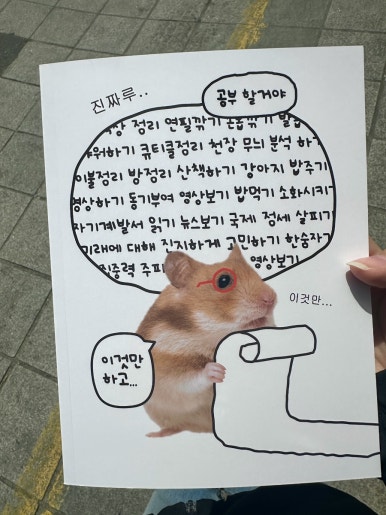 진짜루..
공부 할거야
정리 연필깎기 손톱깎기
하기 큐티클정리 천장 무늬 분석 하기
이불정리 방정리 산책하기 강아지 밥주기
명상하기 동기부여 영상보기 밥먹기 소화시키기
자기계발서 읽기 뉴스보기 국제 정세 살피기
미래에 대해 진지하게 고민하기 한숨자기
집중력 영상보기
이것만...
이것만
하고...